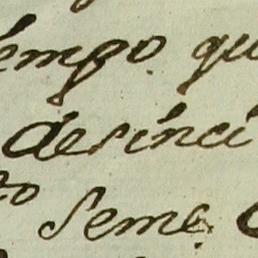 tempo. qu
desinci
to Seme